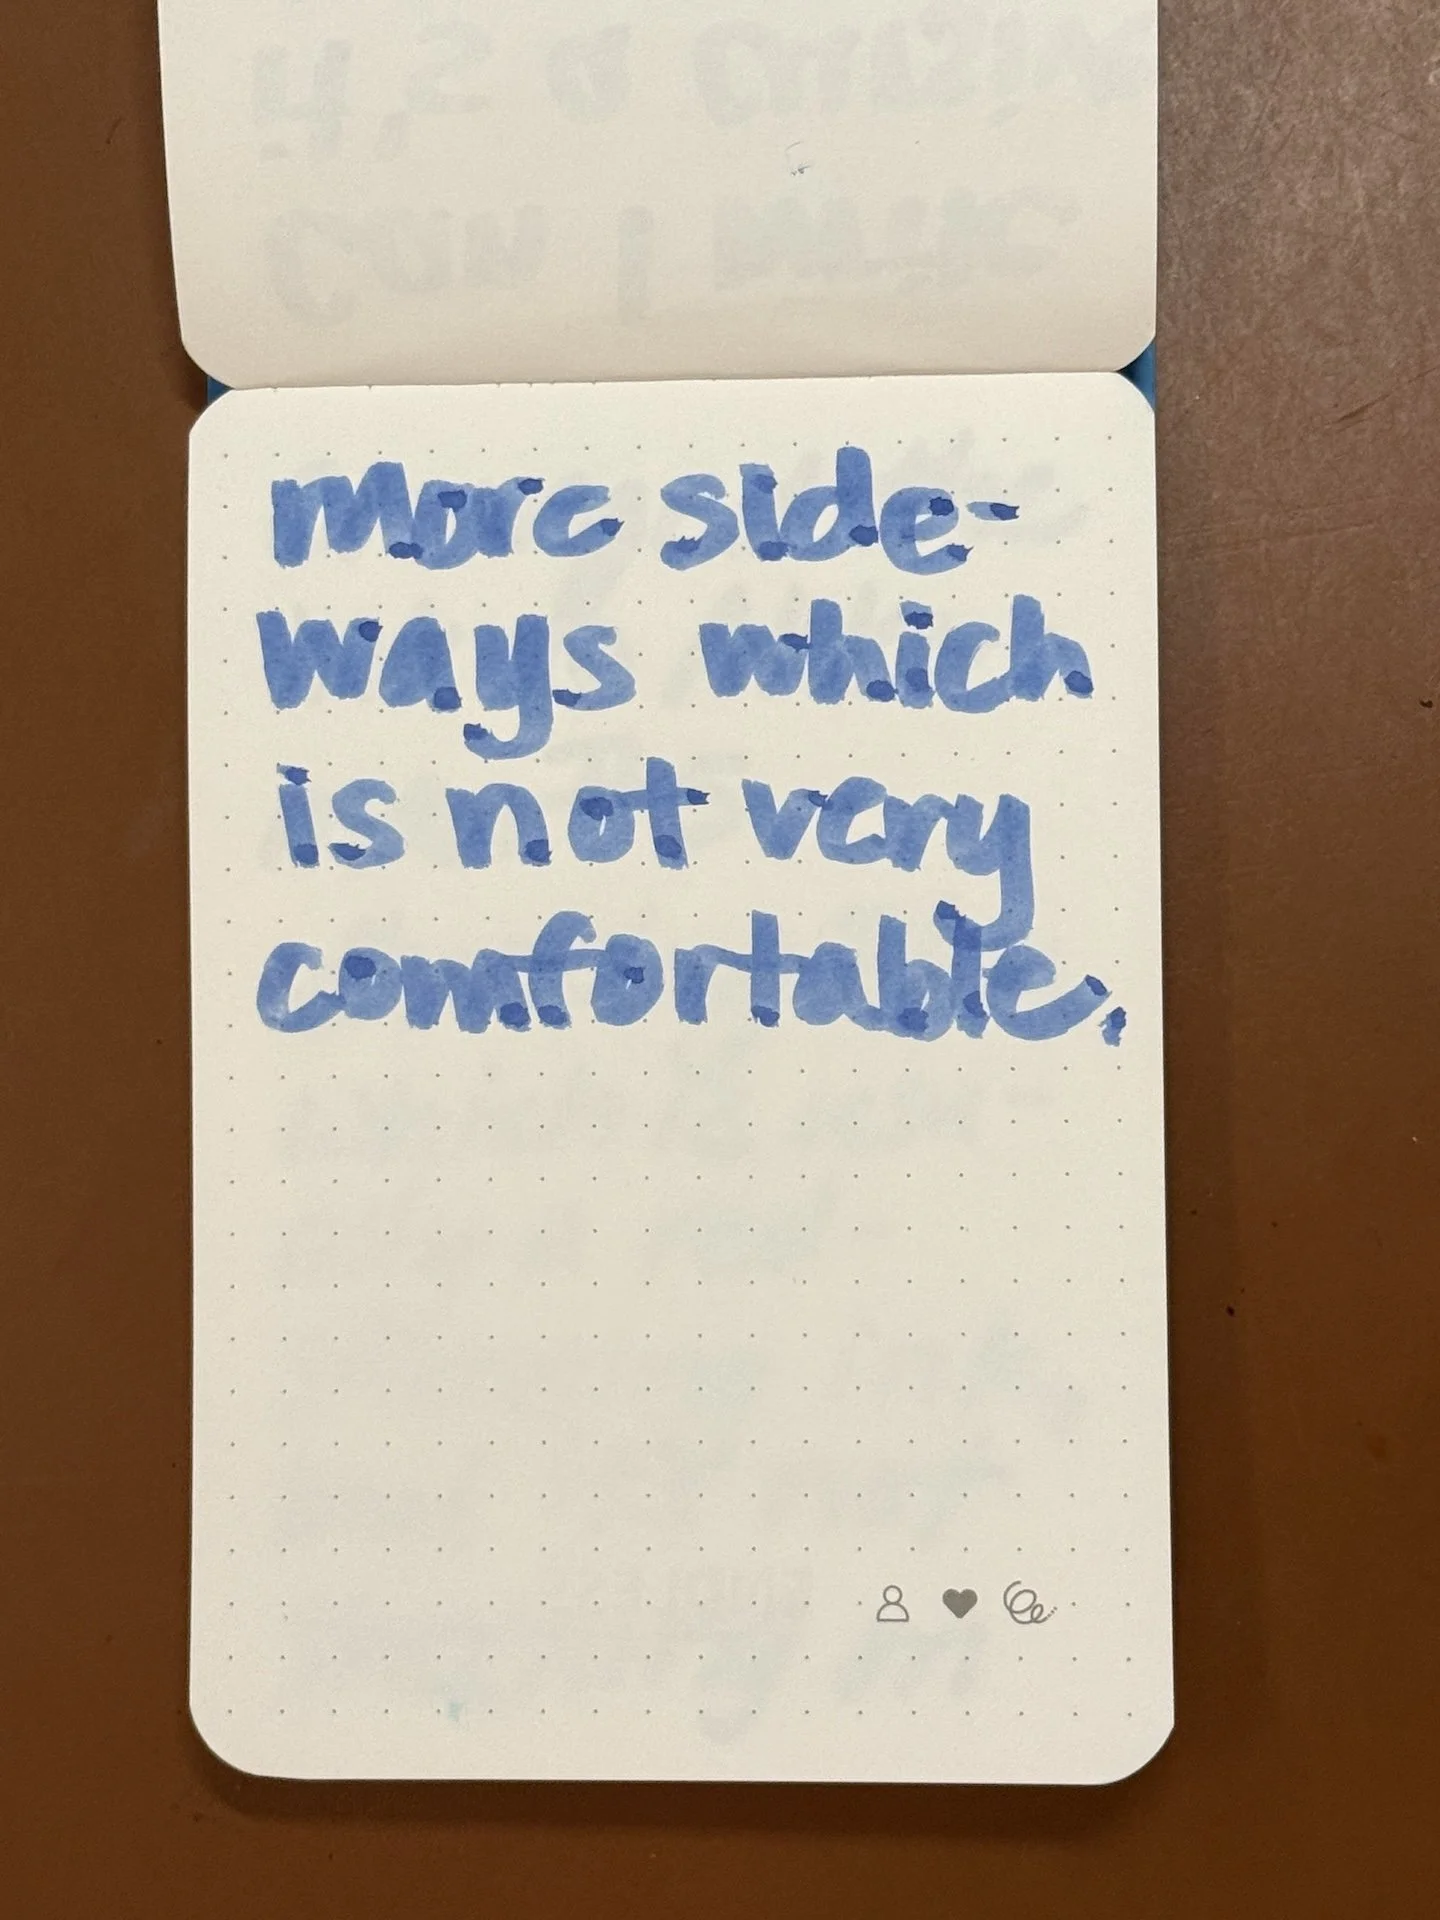 more side-
ways which
is not very
comfortable.